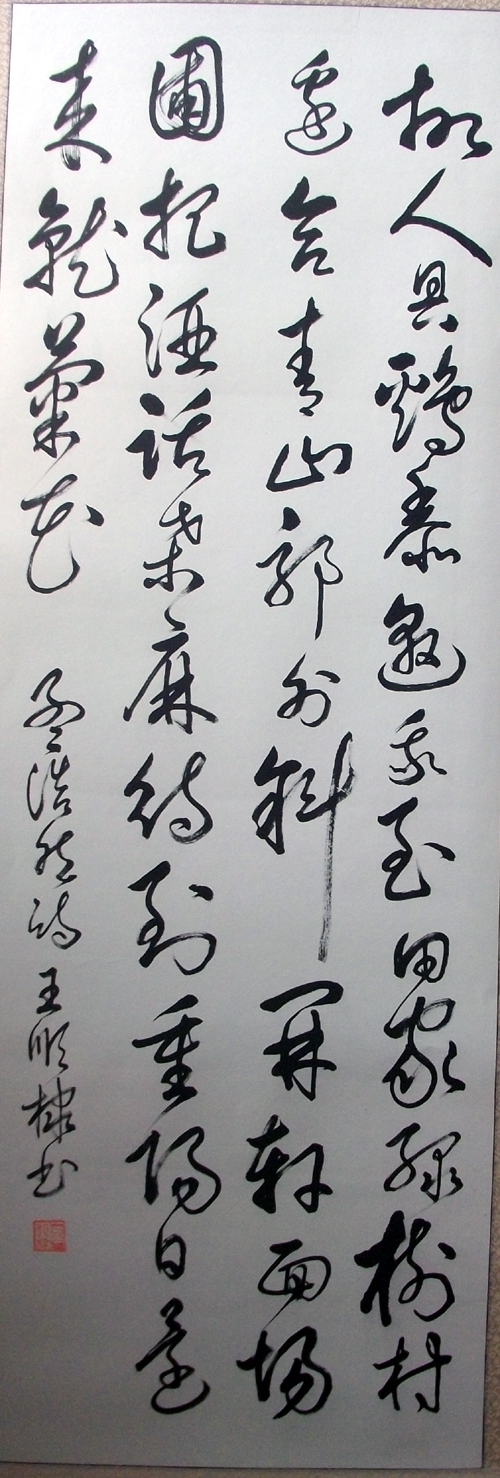 故人具鷄黍邀我至田家綠樹村
邊合青山郭外斜開軒面場
圃把酒話桑麻待到重陽日還
來就菊花 孟浩然詩 王順棣书